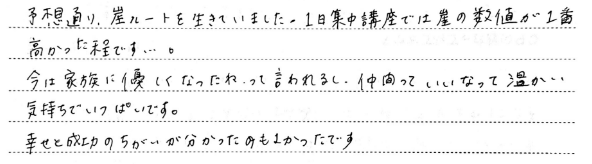 予想通り、崖ルートを生きていました。1日集中講座では崖の数値が1番
高かった程です…。
今は家族に優しくなったね、って言われるし、仲間っていいなって温かい
気持ちでいっぱいです。
幸せと成功のちがいが分かったのもよかったです